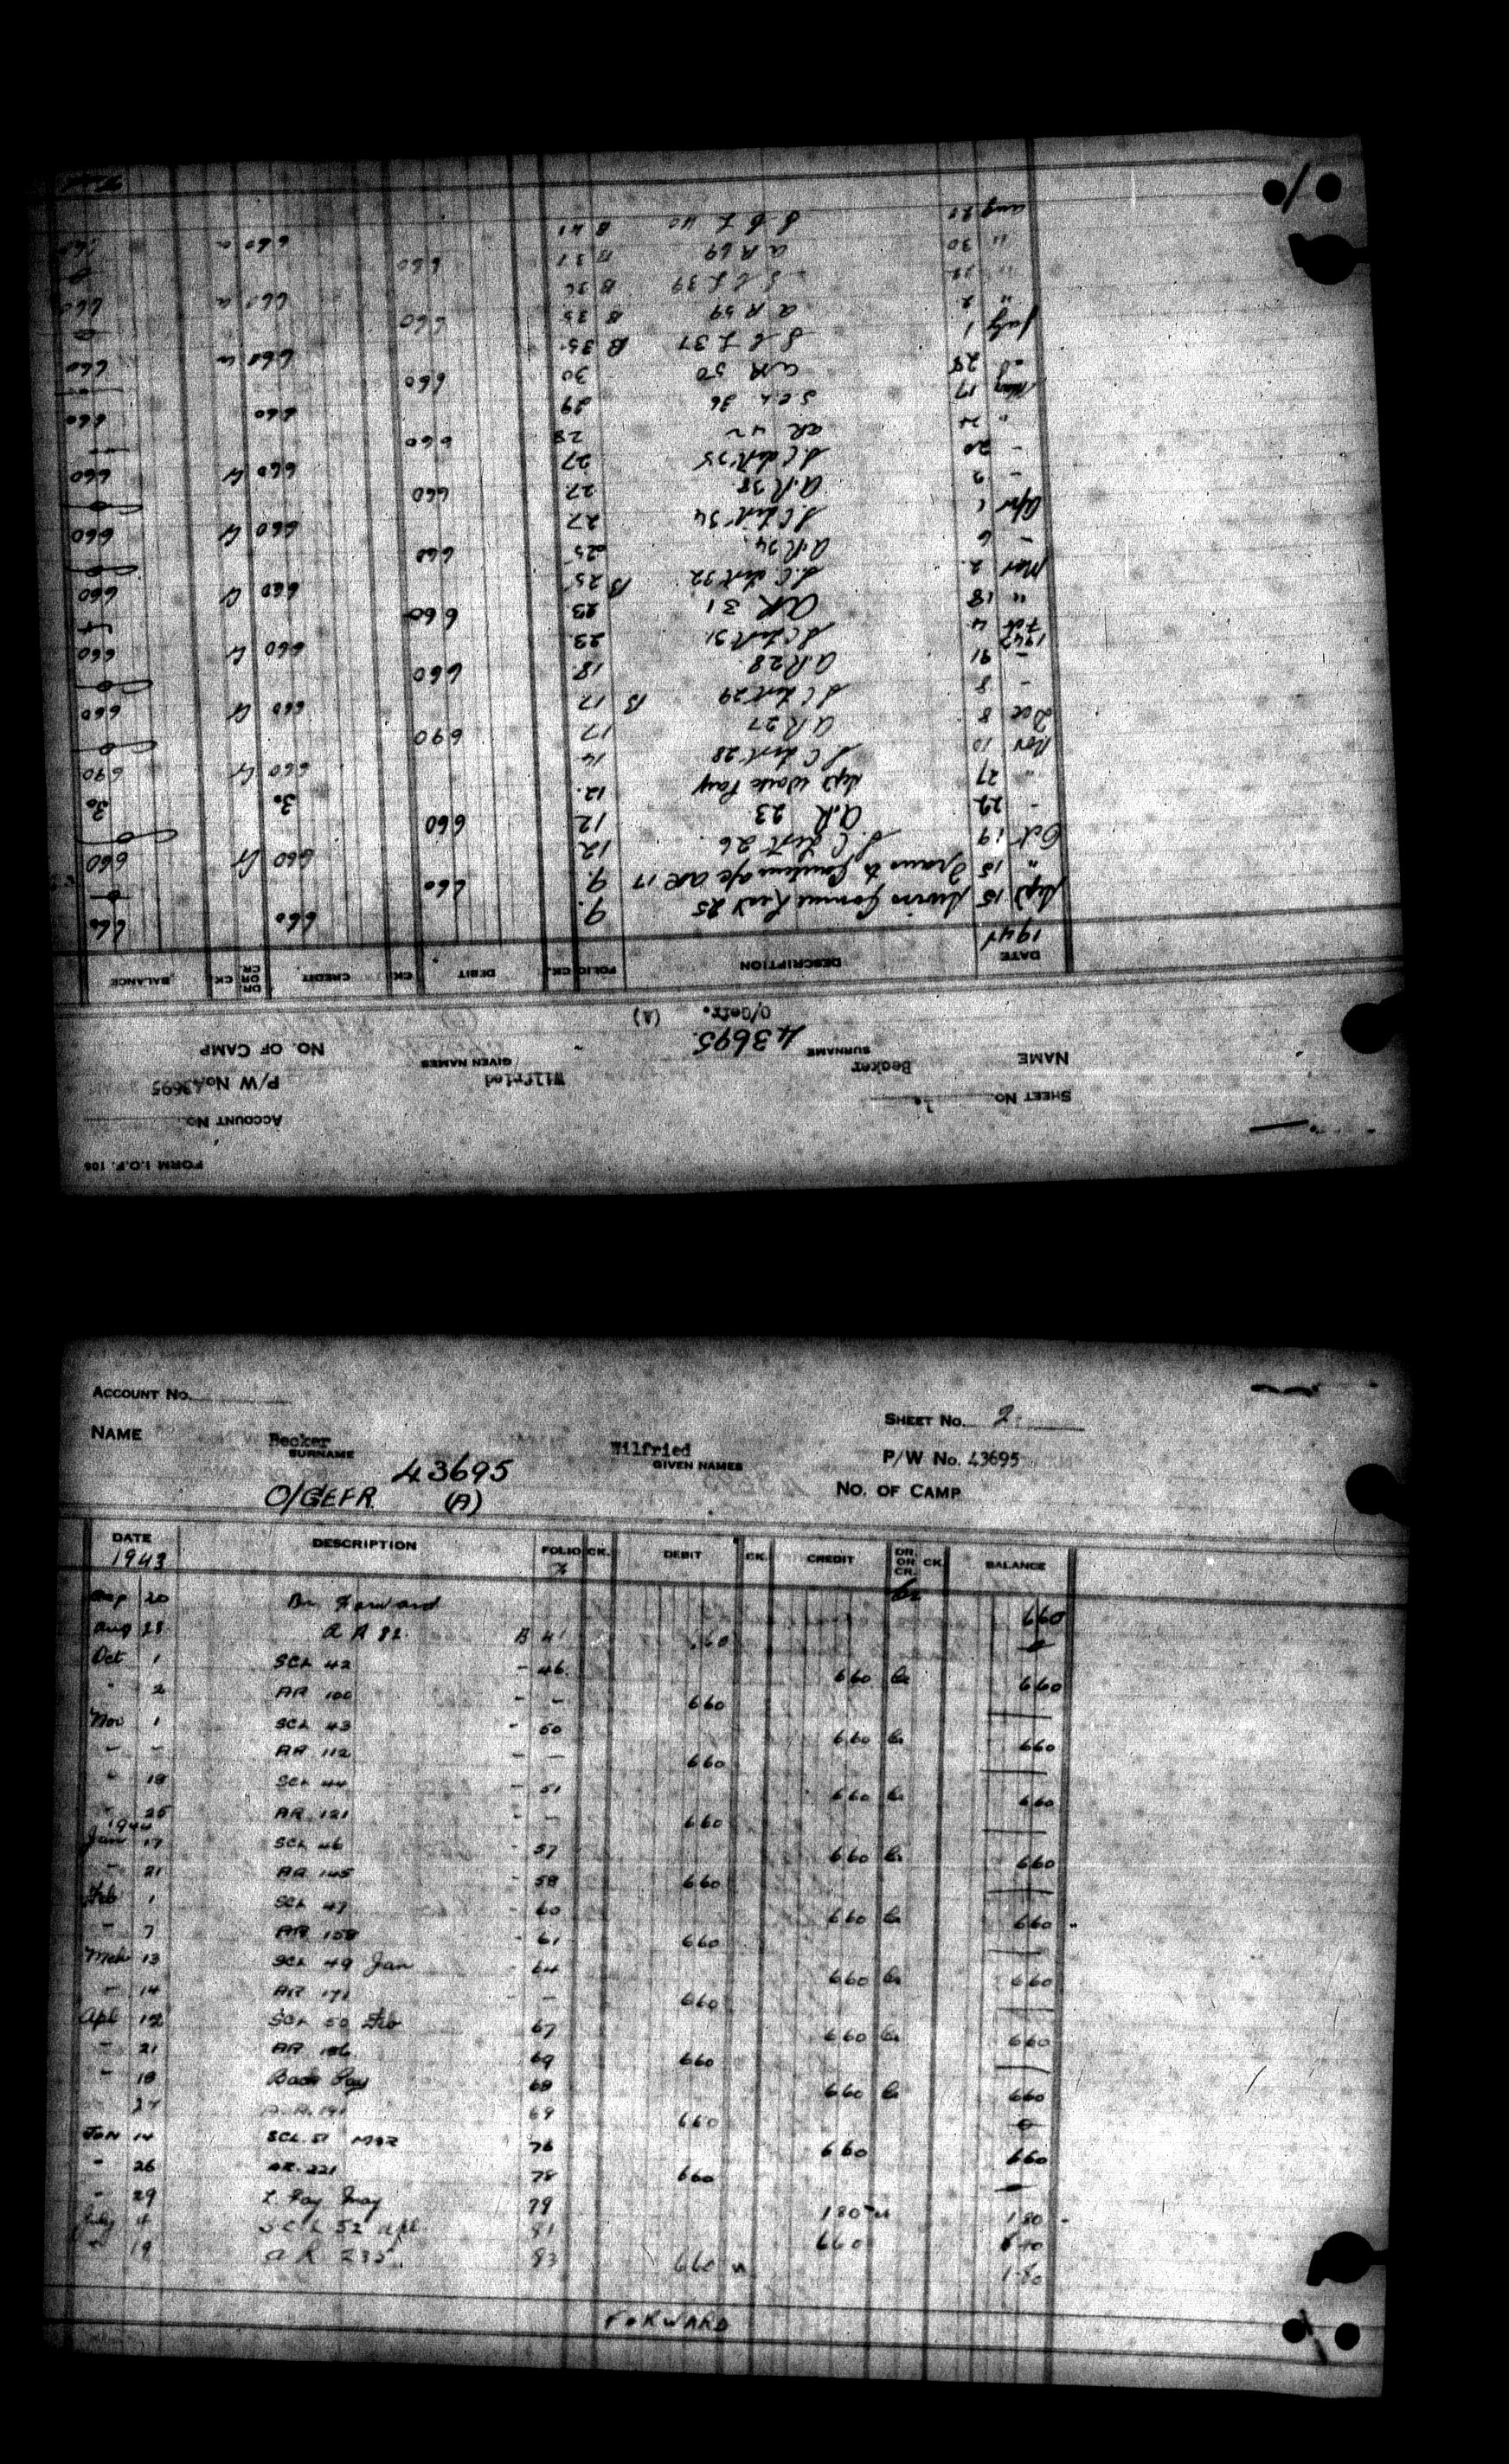 FORM I.O.F. 106
ACCOUNT No.
SHEET No. 1.
P/W No. 43695
NAME Becker Wilfried
SURNAME GIVEN NAMES
43695
NO. OF CAMP
O/Gefr. (A)
DATE DESCRIPTION FOLIO CK. DEBIT CK. CREDIT DR. OR CR. CK. BALANCE
15 25 9. 660 660
" 15 Drawn to Canteen a/c AR 17 9. 660 0
Oct 19 S.C List 26 12 660 Cr 660
- 22 A.R 23 12 660 0
" 27 Work Pay 12. 30 30
Nov 10 S C List 28 14 660 Cr 690
Dec 8 A R 27 17 690 0
- 8 S C List 29 B 17 660 Cr 660
- A.R 28 18 660 0
Feb 4 S C List 31 23 660 Cr 660
" 18 AR 31 23 660
Mar 2 S.C List 32 B 25 660 Cr 660
- 6 A.R 34 25 660 0
Apr 1 S.C List 34 27 660 Cr 660
- 2 A.R 38 27 660 0
- 20 S.C List 35 27 660 Cr 660
" AR 42 28 660 —
May 17 S C L 36 29 660 660
28 AR 50 30 660 —
July 1 S C L 37 B 35 660 660
" 2 A R 59 B 35 660 0
" S C L 39 B 36 660 660
" 30 A R 69 B 37 660 0
Aug S C L 40 B 41 660 660
ACCOUNT No.
SHEET No. 2
NAME Becker Wilfried
SURNAME GIVEN NAMES
P/W No. 43695
43695
NO. OF CAMP
O/GEFR. (A)
DATE DESCRIPTION FOLIO CK. DEBIT CK. CREDIT DR. OR CR. CK. BALANCE
1943
20 Br Forward Cr 660
Aug 28 A R 82 B 41 660 0
Oct 1 SCL 42 - 46. 660 Cr 660
" 2 AR 100 - - 660 —
Nov 1 SCL 43 - 50 660 Cr 660
- - AR 112 - - 660 —
" 18 SCL 44 - 51 660 Cr 660
25 AR 121 - - 660 —
1944
Jan 17 SCL 46 - 57 660 Cr 660
- 21 AR 145 - 58 660 —
Feb 1 SCL 47 - 60 660 Cr 660
- 7 AR 158 - 61 660 —
Mch 13 SCL 49 Jan - 64 660 Cr 660
- 14 AR 171 - - 660 —
Apl 12 SCL 50 Feb 67 660 Cr 660
- 21 AR 186 69 660 —
- 18 Back Pay 68 660 Cr 660
27 A.R. 191 69 660 0
JUN 14 SCL. 51 MAR 76 660 660
- 26 AR. 221 78 660 —
- 29 L Pay May 79 180 180
July 4 S C L 52 Apl. 81 660 840
" 19 A R 235 83 660 180
FORWARD